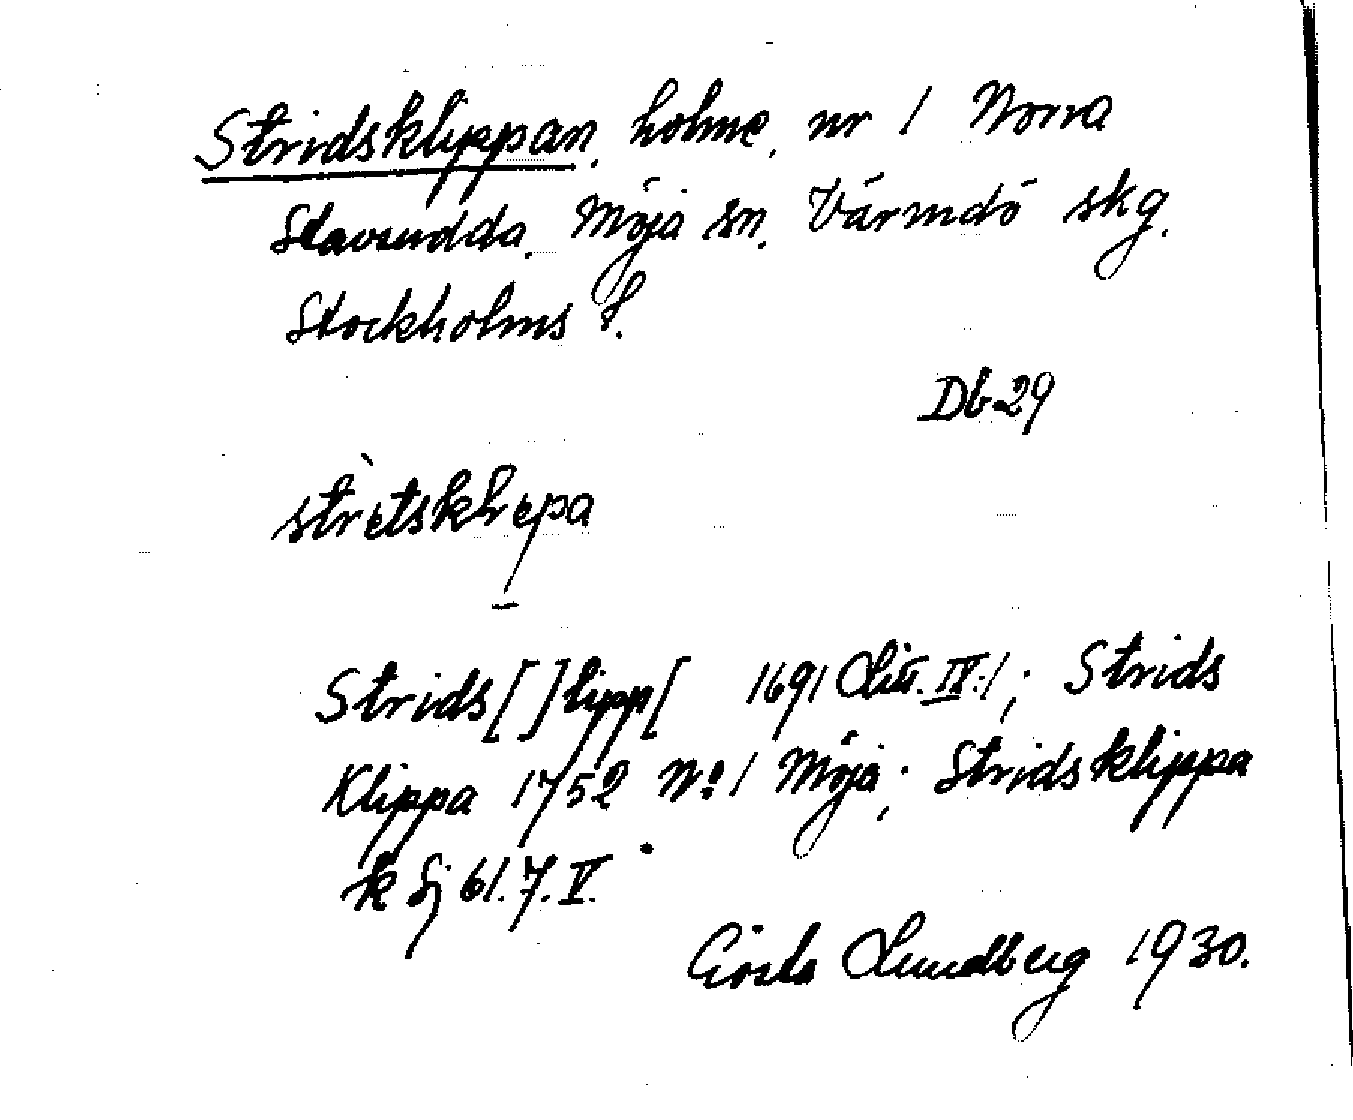 Stridsklippan, holme, nr 1 Norra
Stavsudda, Möja sn, Värmdö skg,
Stockholms l.
Db 29
strètsklepa
Strids[ ]lipp[ 1691 Litt. IV. 1; Strids
Klippa 1752 No 1 Möja; Stridsklippa
k Sj 61. 7. V.
Gösta Lundberg 1930.